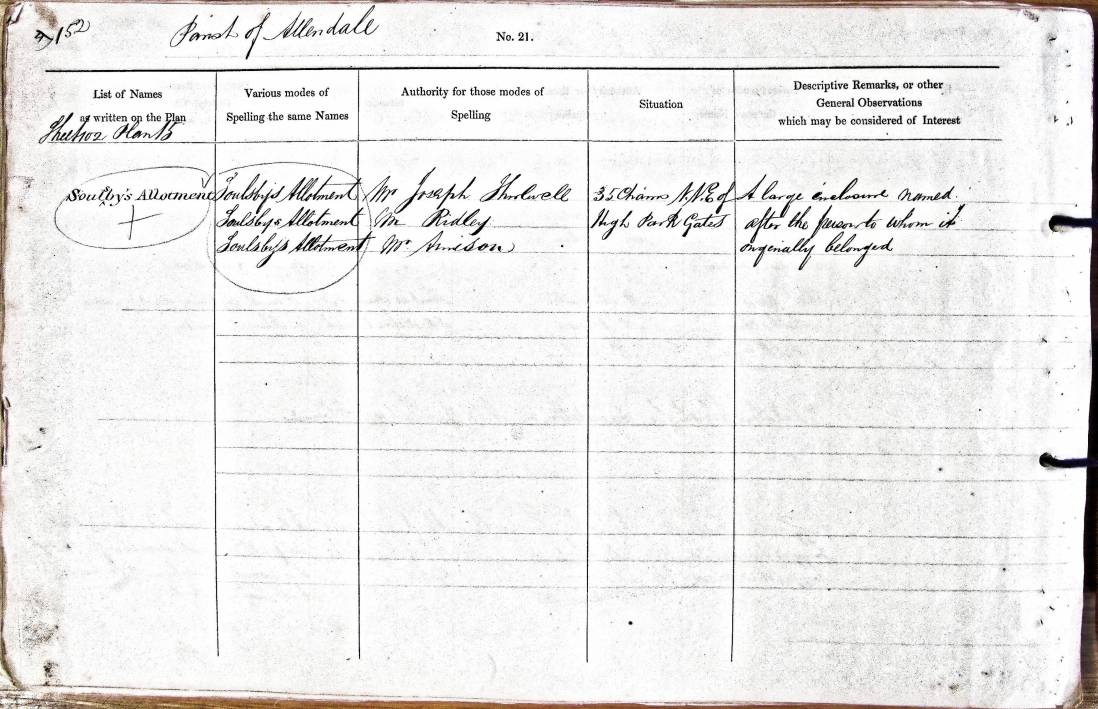 152 Parish of Allendale No. 21.
List of Names
as written on the Plan
Various modes of
Spelling the same Names
Authority for those modes of
Spelling
Situation
Descriptive Remarks, or other
General Observations
which may be considered of Interest
Sheet 102 Plan 15
Soulby's Allotment Soulsby's Allotment Mr Joseph Thirlwell 35 Chains N.N.E of A large enclosure named
Soulsbys Allotment Mr Ridley High Park Gates after the person to whom it
Soulsby's Allotment Mr originally belonged